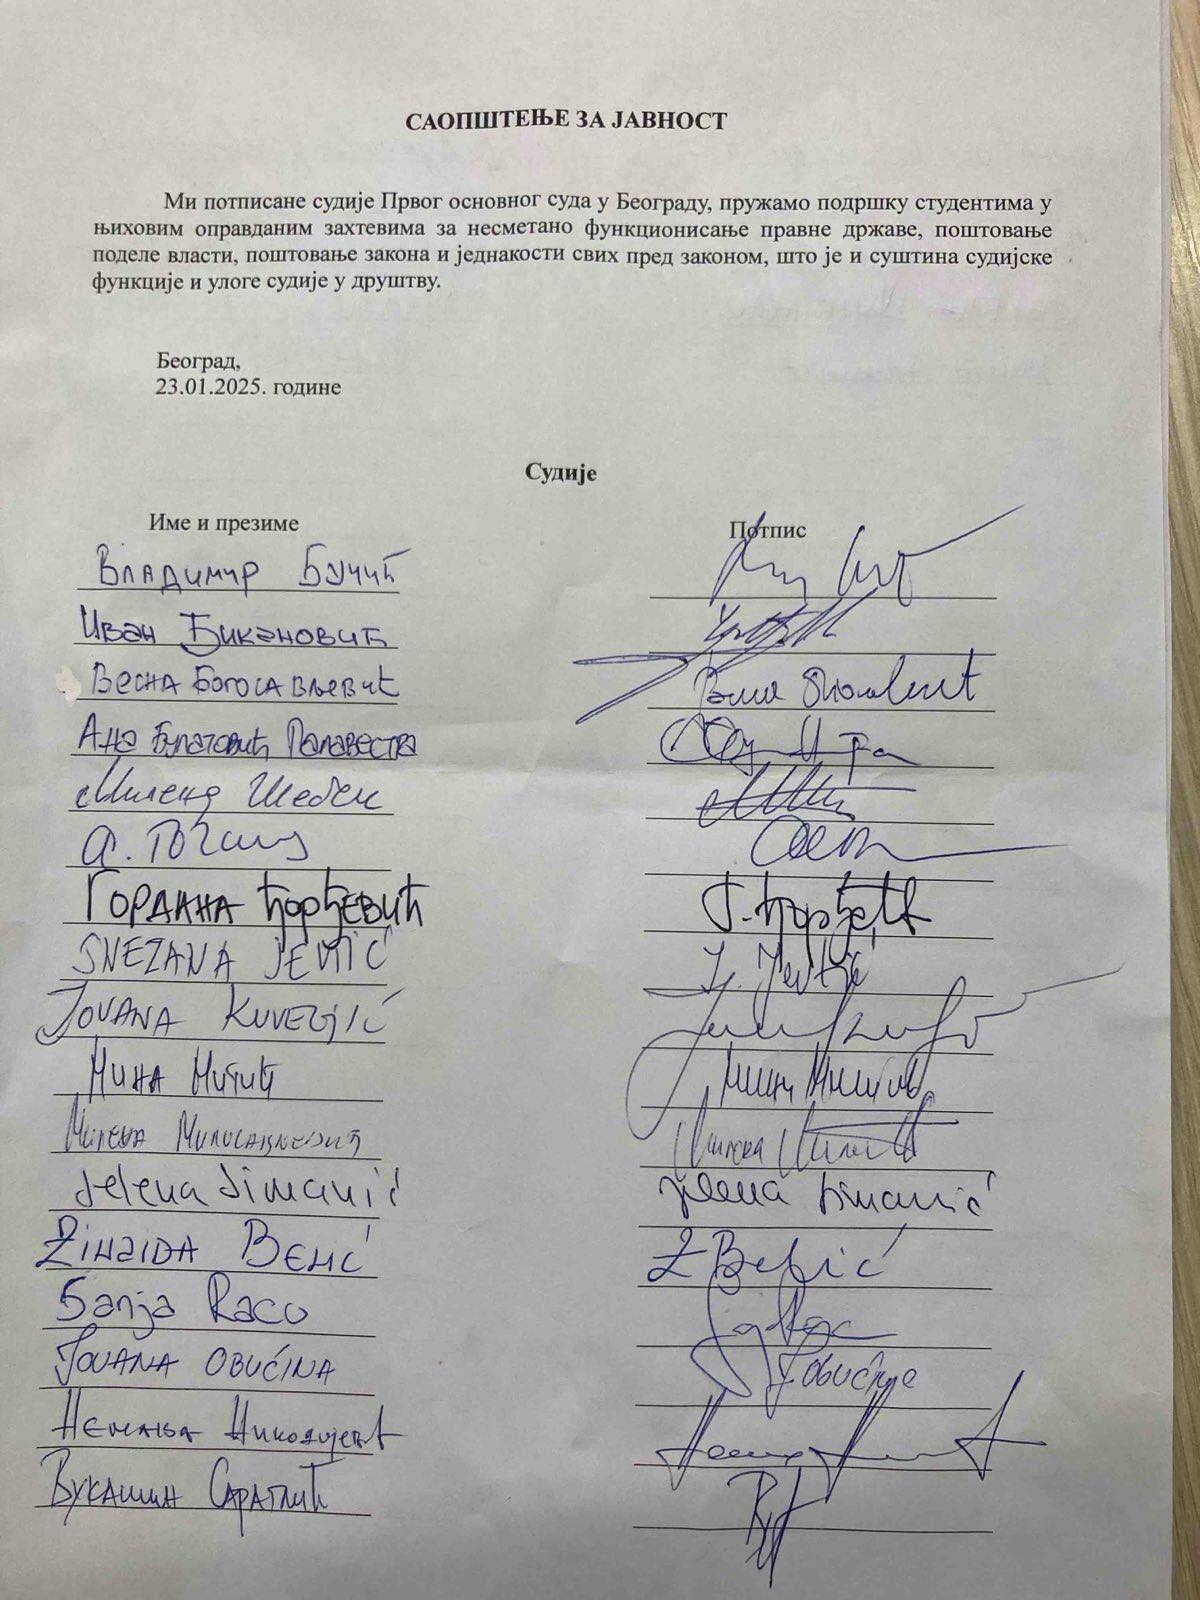 САОПШТЕЊЕ ЗА ЈАВНОСТ
Ми потписане судије Првог основног суда у Београду, пружамо подршку студентима у
њиховим оправданим захтевима за несметано функционисање правне државе, поштовање
поделе власти, поштовање закона и једнакости свих пред законом, што је и суштина судијске
функције и улоге судије у друштву.
Београд,
23.01.2025. године
Судије
Име и презиме Потпис
Владимир Бучић
Иван Ђикановић
Весна Богосављевић
Ана Булатовић Палавестра
Милена Шебек
А.
Гордана Ђорђевић Г. Ђорђевић
SNEZANA JEVTIĆ
JOVANA KUVELJIĆ
Мина Митић
Милена Милосављевић
Jelena Simanić Jelena Simanić
ZINAIDA
Sanja Raco
JOVANA OBUĆINA
Немања Никодијевић
Вукашин Саратлић